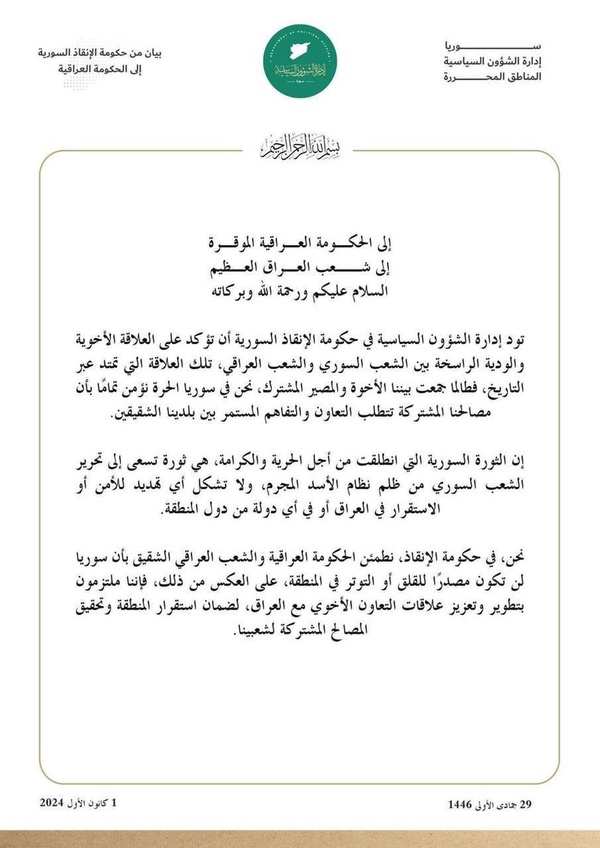 سـوريا
إدارة الشؤون السياسية
المناطق المحـررة
بيان من حكومة الإنقاذ السورية
إلى الحكومة العراقية
DEPARTMENT OF POLITICAL AFFAIRS
إدارة الشؤون السياسية
بسم الله الرحمن الرحيم
إلى الحكومة العراقية الموقرة
إلى شعب العراق العظيم
السلام عليكم ورحمة الله وبركاته
تود إدارة الشؤون السياسية في حكومة الإنقاذ السورية أن تؤكد على العلاقة الأخوية
والودية الراسخة بين الشعب السوري والشعب العراقي، تلك العلاقة التي تمتد عبر
التاريخ، فطالما جمعت بيننا الأخوة والمصير المشترك، نحن في سوريا الحرة نؤمن تمامًا بأن
مصالحنا المشتركة تتطلب التعاون والتفاهم المستمر بين بلدينا الشقيقين.
إن الثورة السورية التي انطلقت من أجل الحرية والكرامة، هي ثورة تسعى إلى تحرير
الشعب السوري من ظلم نظام الأسد المجرم، ولا تشكل أي تهديد للأمن أو
الاستقرار في العراق أو في أي دولة من دول المنطقة.
نحن، في حكومة الإنقاذ، نطمئن الحكومة العراقية والشعب العراقي الشقيق بأن سوريا
لن تكون مصدرًا للقلق أو التوتر في المنطقة، على العكس من ذلك، فإننا ملتزمون
بتطوير وتعزيز علاقات التعاون الأخوي مع العراق، لضمان استقرار المنطقة وتحقيق
المصالح المشتركة لشعبينا.
29 جمادى الأولى 1446
1 كانون الأول 2024